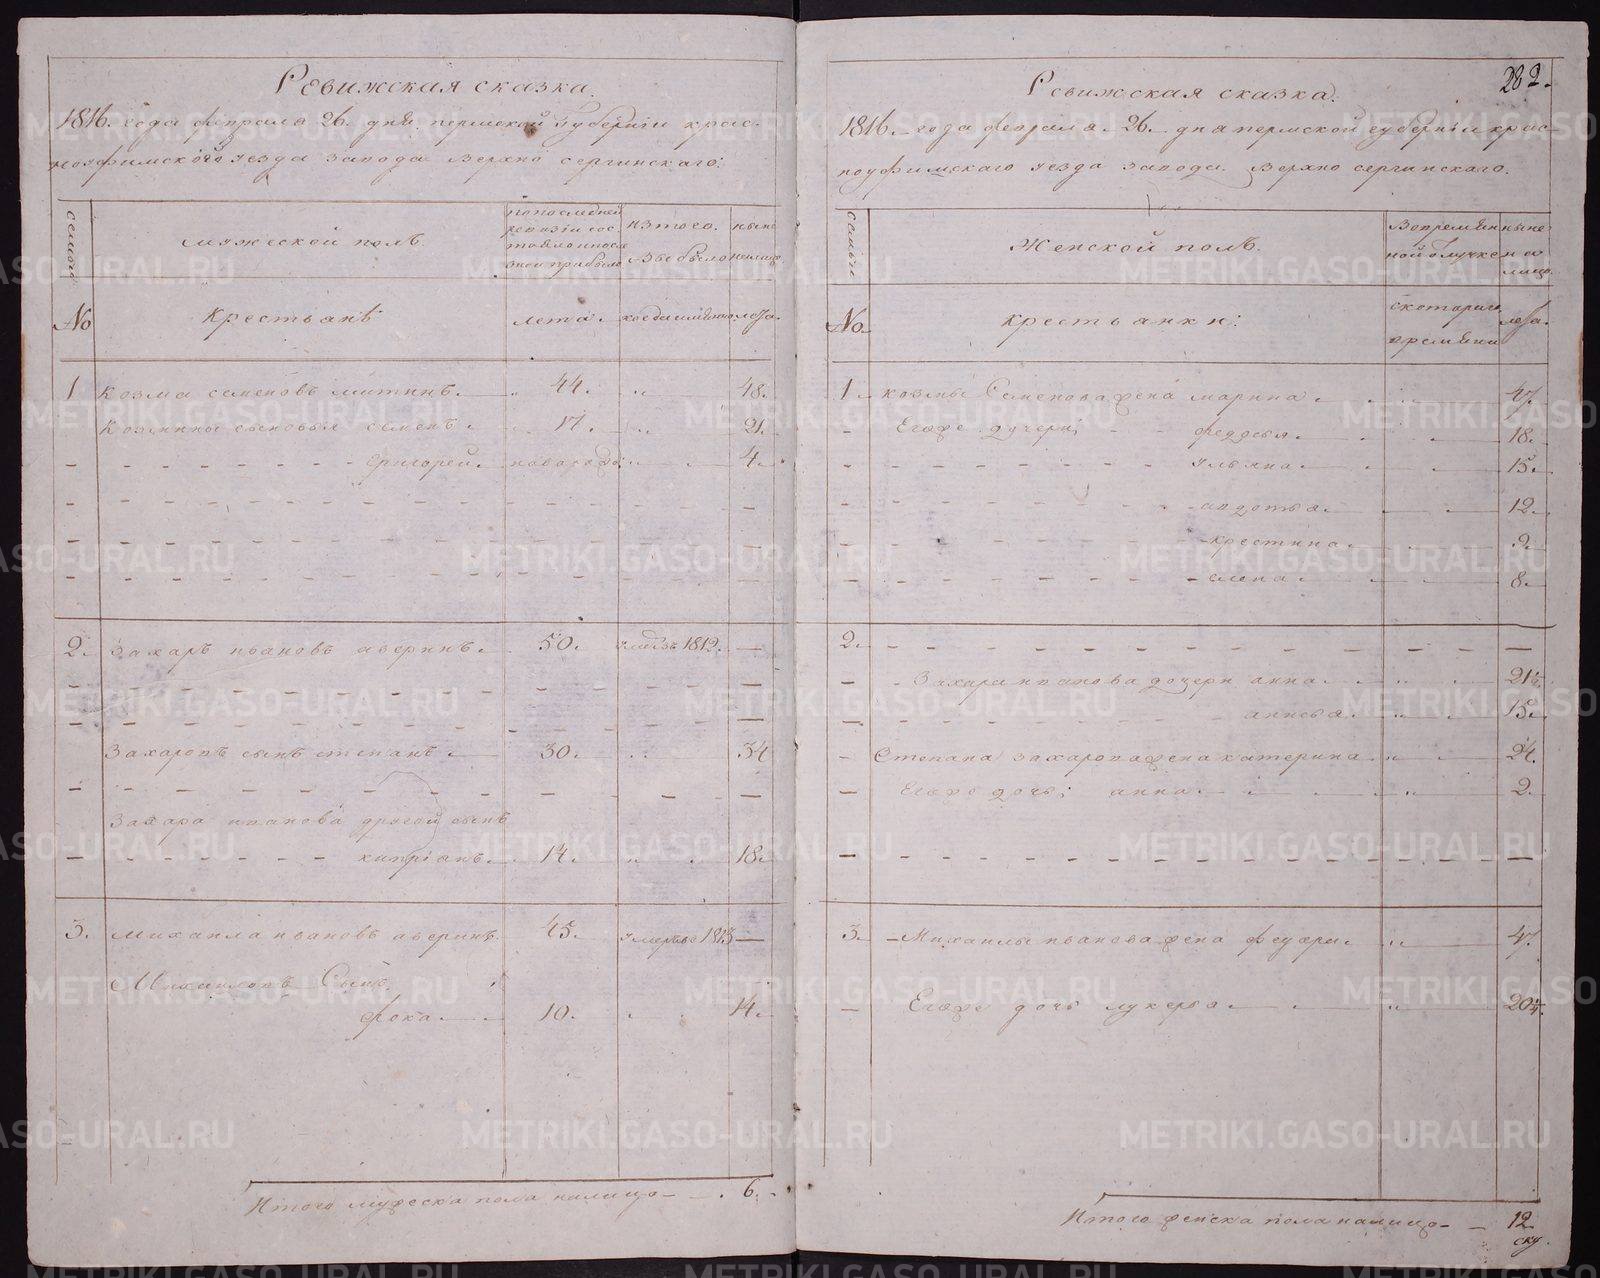 Ревижская сказка.
1816. года февраля 26. дня пермской губернии крас-
ноуфимского уезда завода верхно сергинскаго:
семьи
мужеской полъ
по последней ревизiи сос-
изъ того выбыло
ныне налицо
№
крестьянѣ
лета
лета.
1 козма семеновъ митинъ. 44. 48.
козмины сыновья семенъ. 17. 21.
григорей новорож: 4.
2. захаръ ивановъ аверинъ. 50. 1812. —
захаровъ сынъ степанъ 30. 34
захара иванова другой сынъ
кипрiанъ. 14. 18.
3. михаила ивановъ аверинъ. 45. умерѣ 1813 —
Михаиловъ Сынъ
фока. 10. 14.
Итого мужеска пола налицо — 6.
282.
Ревижская сказка.
1816. года февраля 26. дня пермской губернии крас
ноуфимскаго уезда завода верхно сергинскаго.
семьи
Женской полъ.
во времян-
ной отлучке
ныне на лицо
№
крестьянки:
с которого времяни
лета.
1 козмы Семенова жена марина 47.
Егоже дочери; феддосья 18.
ульяна 15.
авдотья. 12.
крестина 9.
елена 8.
2.
Захара иванова дочери анна 21½
анисья. 15.
Степана захарова жена катерина 24.
Егоже дочь; анна 2.
3. Михаилы иванова жена 47.
Егоже дочь лукерья 20¼.
Итого женска пола налицо — 12
METRIKI.GASO-URAL.RU